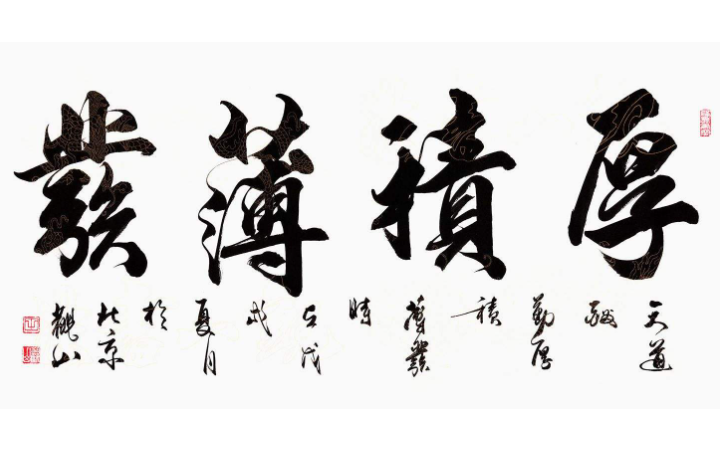 厚積薄發
天道
酬
勤厚
積
薄發
時
在戊
戌
夏月
於
北京